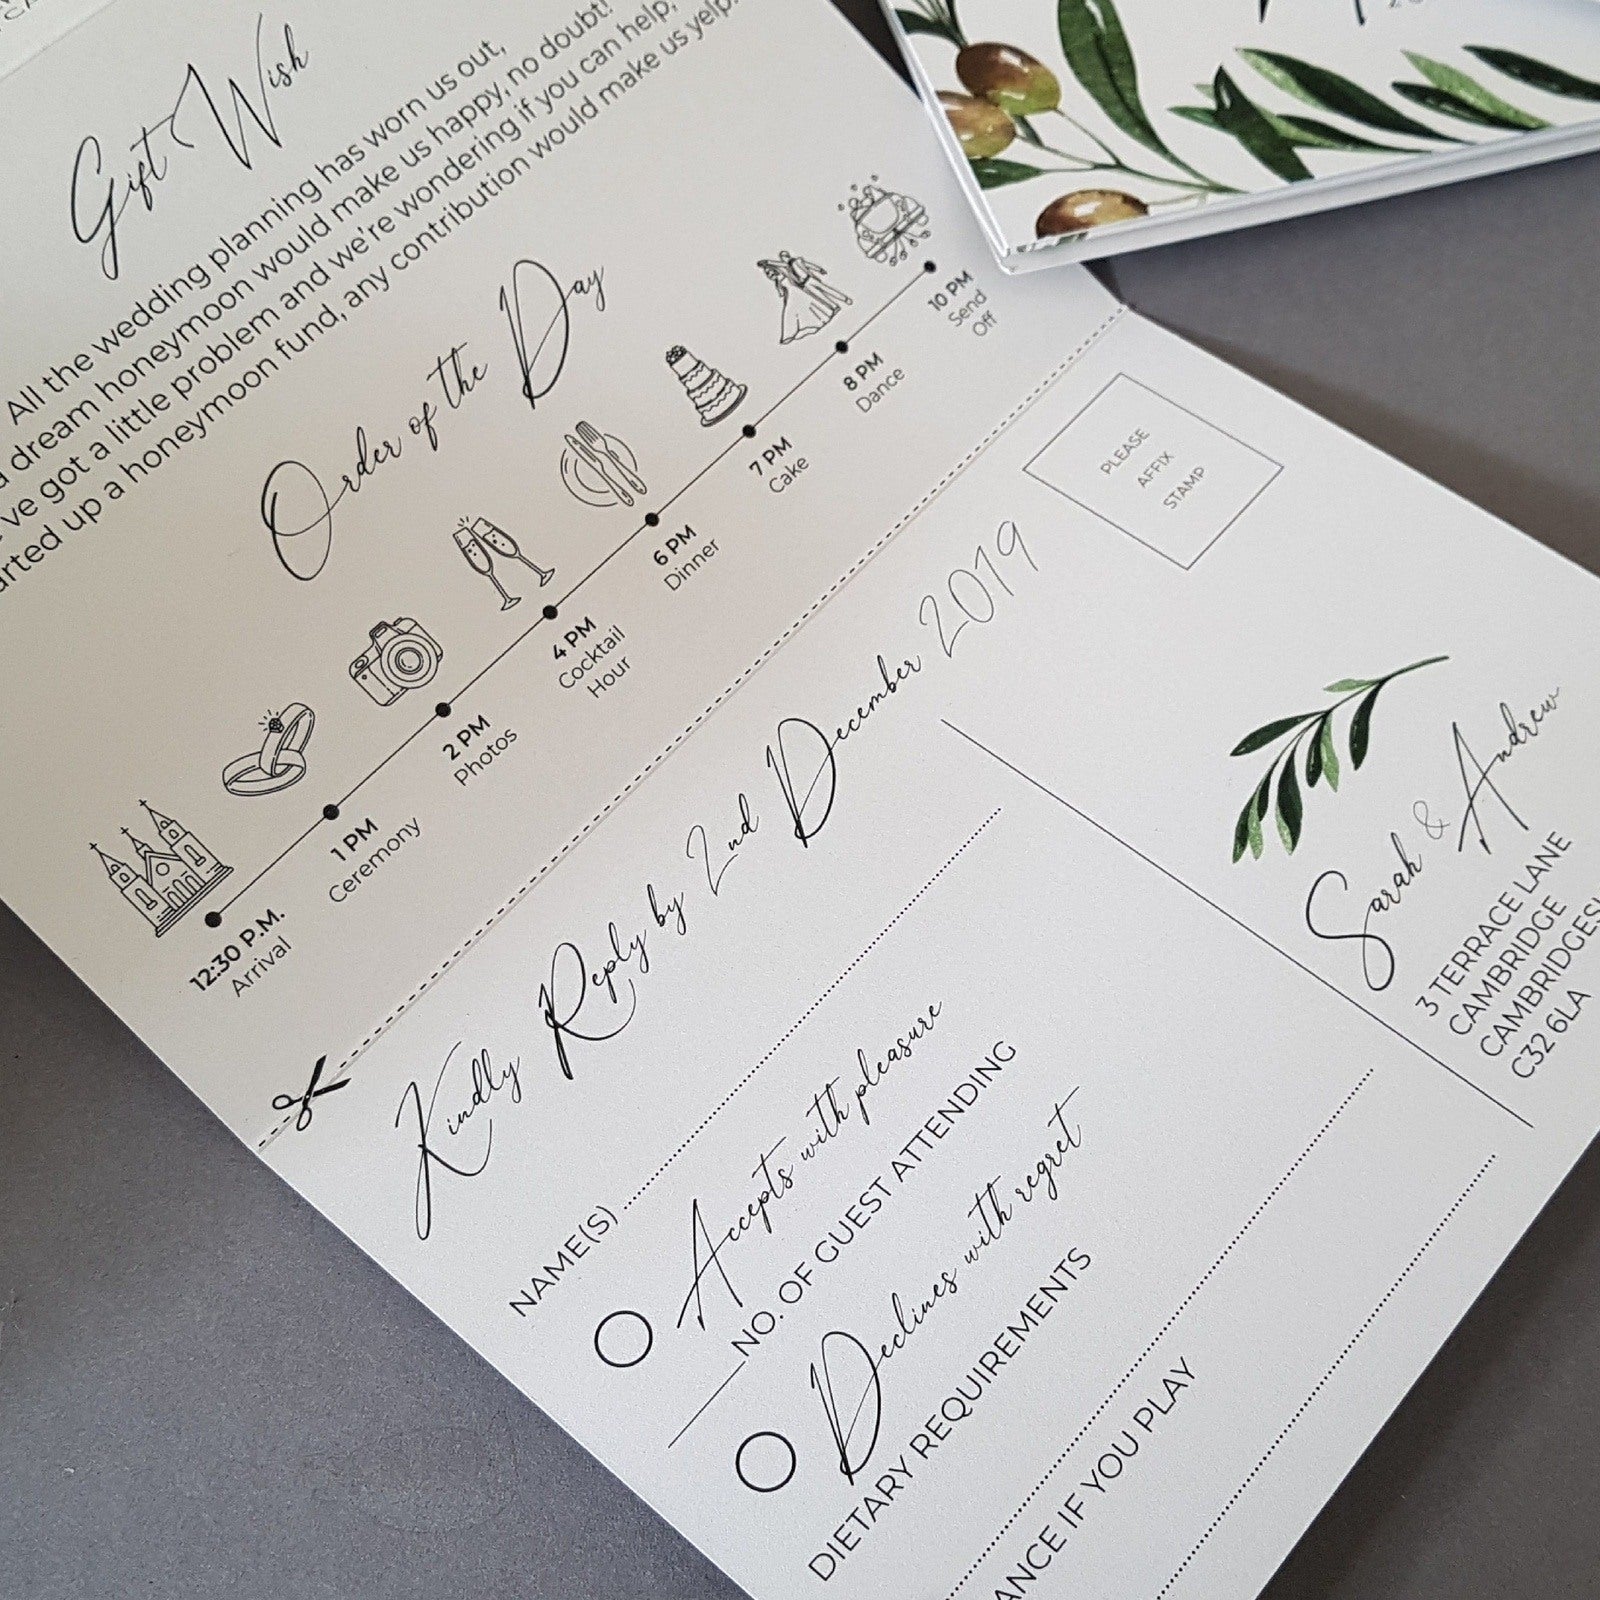 Gift Wish
All the wedding planning has worn us out,
dream honeymoon would make us happy, no doubt!
got a little problem and we're wondering if you can help,
up a honeymoon fund, any contribution would make us yelp.
Order of the Day
12:30 P.M.
Arrival
1 PM
Ceremony
2 PM
Photos
4 PM
Cocktail
Hour
6 PM
Dinner
7 PM
Cake
8 PM
Dance
10 PM
Send
Off
Kindly Reply by 2nd December 2019
NAME(S)
Accepts with pleasure
NO. OF GUEST ATTENDING
Declines with regret
DIETARY REQUIREMENTS
IF YOU PLAY
PLEASE
AFFIX
STAMP
Sarah & Andrew
3 TERRACE LANE
CAMBRIDGE
C32 6LA